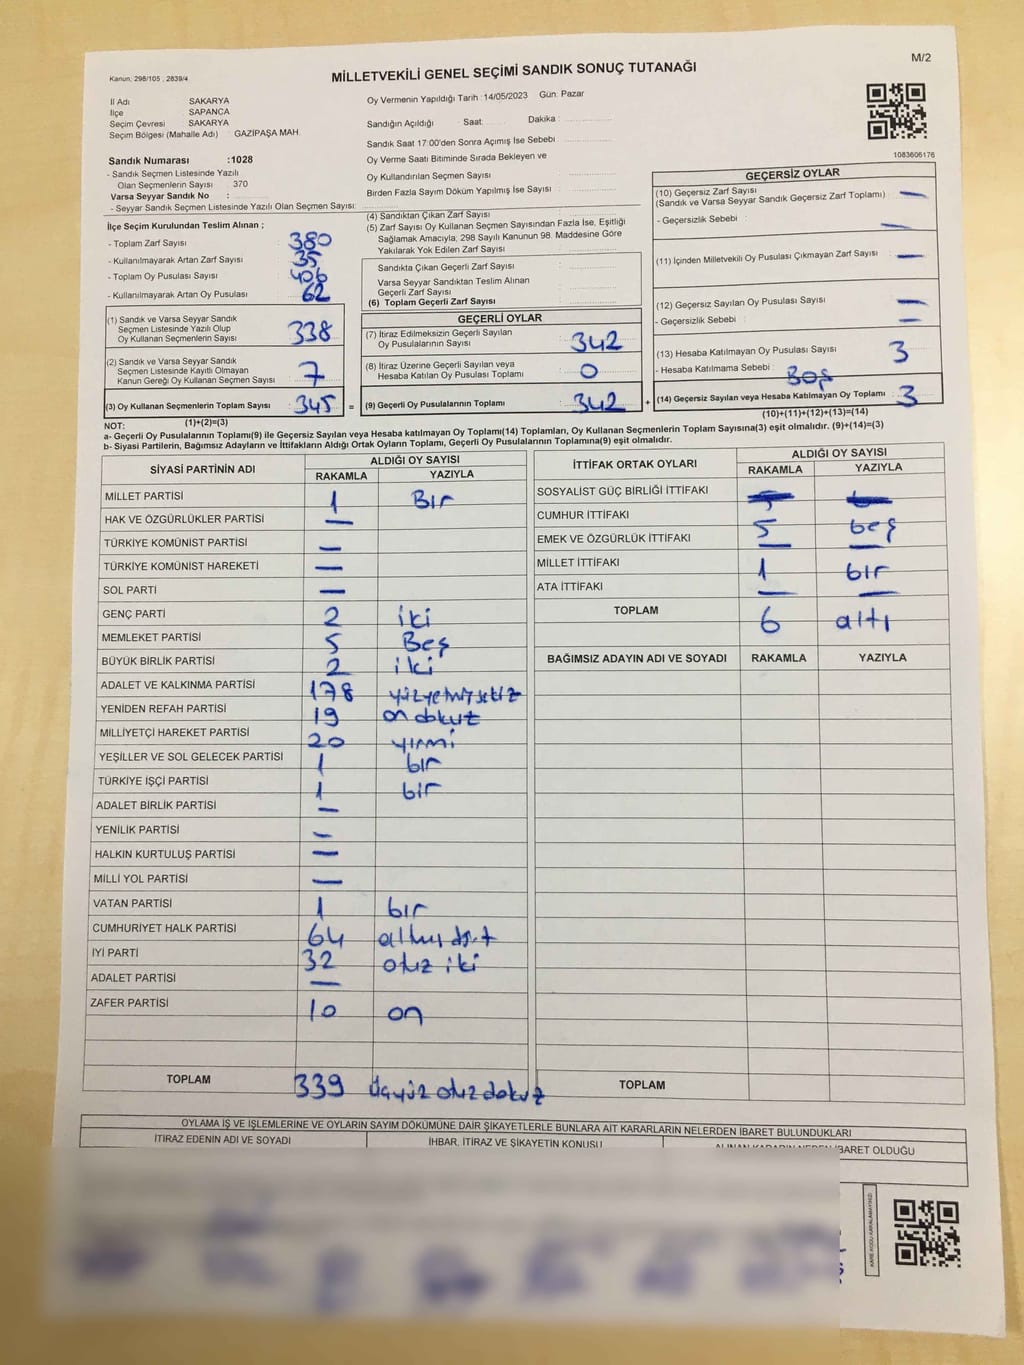 M/2
Kanun: 298/105 , 2839/4
MİLLETVEKİLİ GENEL SEÇİMİ SANDIK SONUÇ TUTANAĞI
İl Adı SAKARYA
İlçe SAPANCA
Seçim Çevresi SAKARYA
Seçim Bölgesi (Mahalle Adı) : GAZİPAŞA MAH.
Sandık Numarası :1028
- Sandık Seçmen Listesinde Yazılı
Olan Seçmenlerin Sayısı : 370
Varsa Seyyar Sandık No :
- Seyyar Sandık Seçmen Listesinde Yazılı Olan Seçmen Sayısı:
Oy Vermenin Yapıldığı Tarih :14/05/2023 Gün: Pazar
Sandığın Açıldığı Saat: Dakika :
Sandık Saat 17:00'den Sonra Açımış İse Sebebi :
Oy Verme Saati Bitiminde Sırada Bekleyen ve
Oy Kullandırılan Seçmen Sayısı :
Birden Fazla Sayım Döküm Yapılmış İse Sayısı :
1083606176
İlçe Seçim Kurulundan Teslim Alınan ;
- Toplam Zarf Sayısı : 380
- Kullanılmayarak Artan Zarf Sayısı : 35
- Toplam Oy Pusulası Sayısı : 406
- Kullanılmayarak Artan Oy Pusulası : 62
(1) Sandık ve Varsa Seyyar Sandık
Seçmen Listesinde Yazılı Olup
Oy Kullanan Seçmenlerin Sayısı : 338
(2) Sandık ve Varsa Seyyar Sandık
Seçmen Listesinde Kayıtlı Olmayan
Kanun Gereği Oy Kullanan Seçmen Sayısı : 7
(3) Oy Kullanan Seçmenlerin Toplam Sayısı : 345
(1)+(2)=(3)
(4) Sandıktan Çıkan Zarf Sayısı :
(5) Zarf Sayısı Oy Kullanan Seçmen Sayısından Fazla İse, Eşitliği
Sağlamak Amacıyla; 298 Sayılı Kanunun 98. Maddesine Göre
Yakılarak Yok Edilen Zarf Sayısı :
Sandıkta Çıkan Geçerli Zarf Sayısı :
Varsa Seyyar Sandıktan Teslim Alınan
Geçerli Zarf Sayısı :
(6) Toplam Geçerli Zarf Sayısı :
GEÇERLİ OYLAR
(7) İtiraz Edilmeksizin Geçerli Sayılan
Oy Pusulalarının Sayısı : 342
(8) İtiraz Üzerine Geçerli Sayılan veya
Hesaba Katılan Oy Pusulası Toplamı : 0
= (9) Geçerli Oy Pusulalarının Toplamı : 342 +
GEÇERSİZ OYLAR
(10) Geçersiz Zarf Sayısı
(Sandık ve Varsa Seyyar Sandık Geçersiz Zarf Toplamı) : —
- Geçersizlik Sebebi : —
(11) İçinden Milletvekili Oy Pusulası Çıkmayan Zarf Sayısı : —
(12) Geçersiz Sayılan Oy Pusulası Sayısı : —
- Geçersizlik Sebebi : —
(13) Hesaba Katılmayan Oy Pusulası Sayısı : 3
- Hesaba Katılmama Sebebi : Boş
(14) Geçersiz Sayılan veya Hesaba Katılmayan Oy Toplamı : 3
(10)+(11)+(12)+(13)=(14)
NOT:
a- Geçerli Oy Pusulalarının Toplamı(9) ile Geçersiz Sayılan veya Hesaba katılmayan Oy Toplamı(14) Toplamları, Oy Kullanan Seçmenlerin Toplam Sayısına(3) eşit olmalıdır. (9)+(14)=(3)
b- Siyasi Partilerin, Bağımsız Adayların ve İttifakların Aldığı Ortak Oyların Toplamı, Geçerli Oy Pusulalarının Toplamına(9) eşit olmalıdır.
SİYASİ PARTİNİN ADI ALDIĞI OY SAYISI
RAKAMLA YAZIYLA
MİLLET PARTİSİ 1 Bir
HAK VE ÖZGÜRLÜKLER PARTİSİ —
TÜRKİYE KOMÜNİST PARTİSİ —
TÜRKİYE KOMÜNİST HAREKETİ —
SOL PARTİ —
GENÇ PARTİ 2 iki
MEMLEKET PARTİSİ 5 Beş
BÜYÜK BİRLİK PARTİSİ 2 iki
ADALET VE KALKINMA PARTİSİ 178 yüzyetmişsekiz
YENİDEN REFAH PARTİSİ 19 on dokuz
MİLLİYETÇİ HAREKET PARTİSİ 20 yirmi
YEŞİLLER VE SOL GELECEK PARTİSİ 1 bir
TÜRKİYE İŞÇİ PARTİSİ 1 bir
ADALET BİRLİK PARTİSİ —
YENİLİK PARTİSİ —
HALKIN KURTULUŞ PARTİSİ —
MİLLİ YOL PARTİSİ —
VATAN PARTİSİ 1 bir
CUMHURİYET HALK PARTİSİ 64 altmış dört
İYİ PARTİ 32 otuz iki
ADALET PARTİSİ —
ZAFER PARTİSİ 10 on
TOPLAM 339 üçyüz otuz dokuz
İTTİFAK ORTAK OYLARI ALDIĞI OY SAYISI
RAKAMLA YAZIYLA
SOSYALİST GÜÇ BİRLİĞİ İTTİFAKI
CUMHUR İTTİFAKI 5 beş
EMEK VE ÖZGÜRLÜK İTTİFAKI — —
MİLLET İTTİFAKI 1 bir
ATA İTTİFAKI — —
TOPLAM 6 altı
BAĞIMSIZ ADAYIN ADI VE SOYADI RAKAMLA YAZIYLA
TOPLAM
OYLAMA İŞ VE İŞLEMLERİNE VE OYLARIN SAYIM DÖKÜMÜNE DAİR ŞİKAYETLERLE BUNLARA AİT KARARLARIN NELERDEN İBARET BULUNDUKLARI
İTİRAZ EDENİN ADI VE SOYADI İHBAR, İTİRAZ VE ŞİKAYETİN KONUSU ALINAN KARARIN NEDEN İBARET OLDUĞU